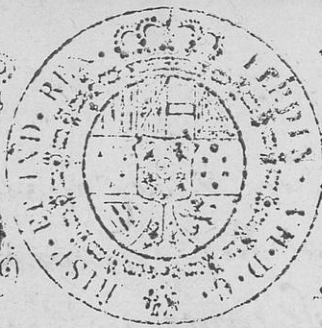 FERDIN. D. G. HISP. ET IND. REX.